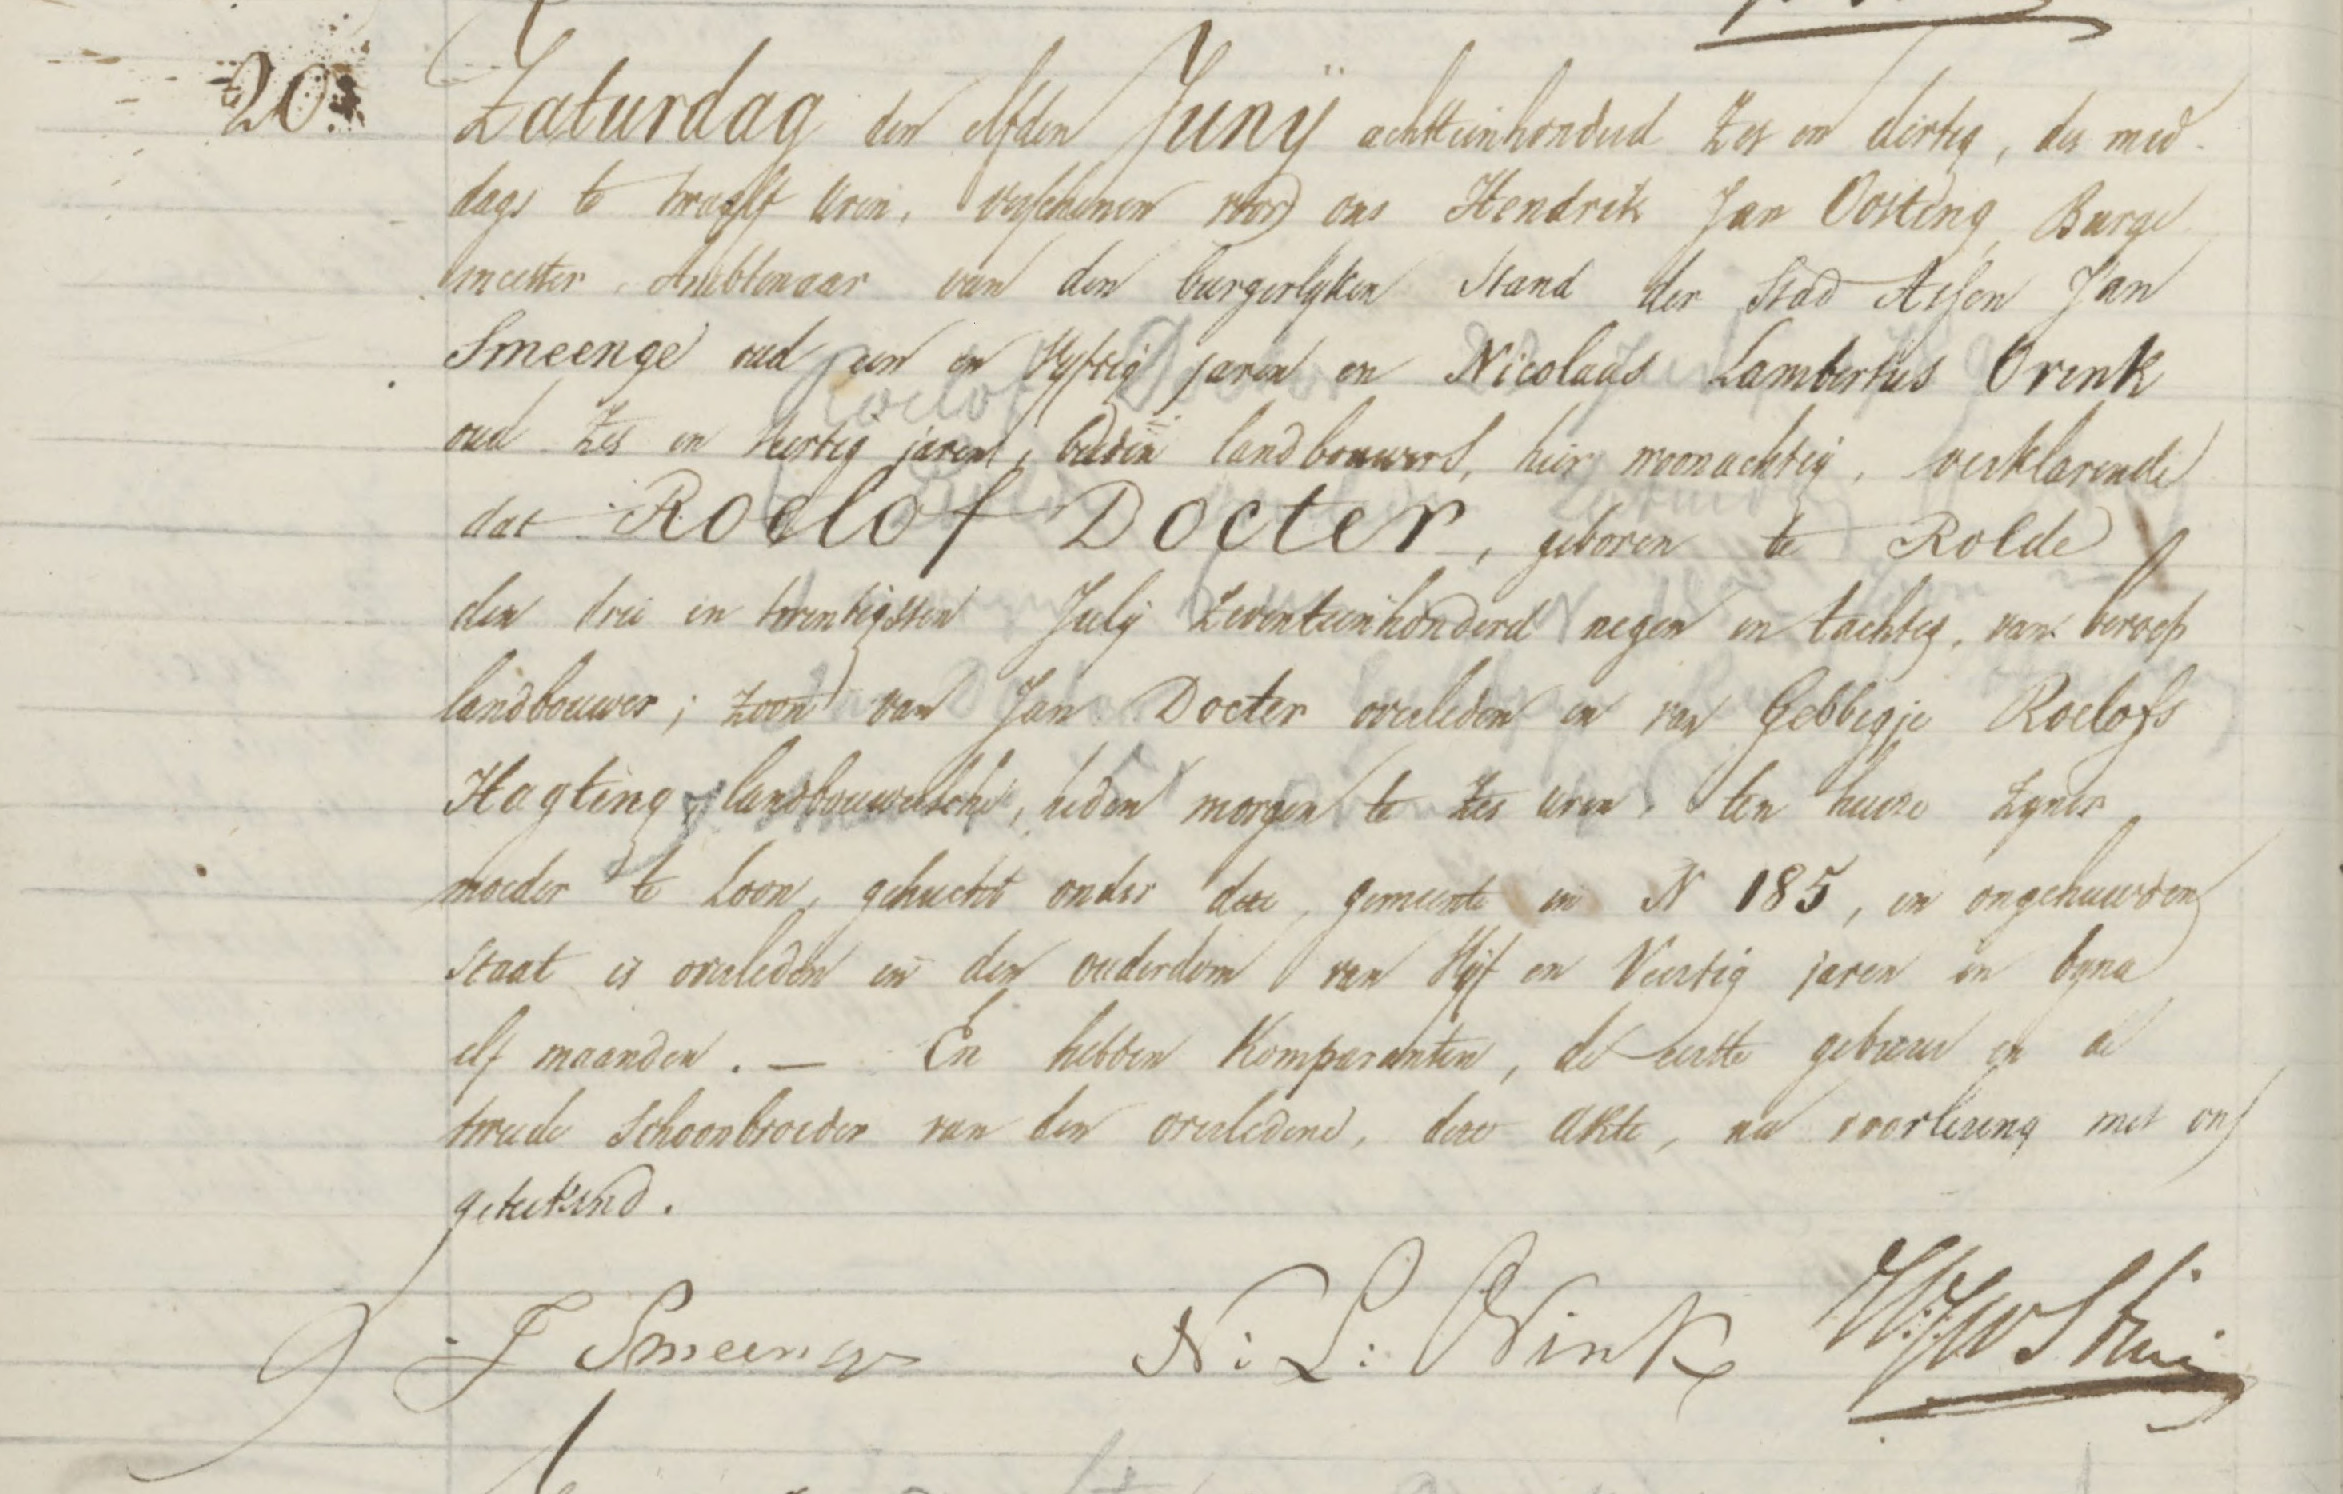 20.
Zaturdag den elfden Junÿ achttienhonderd zes en dertig, des mid-
dags te twaalf uren, verschenen voor ons Hendrik Jan Oosting, Burge
meester, Ambtenaar van den burgerlyken stand der Stad Assen Jan
Smeenge oud een en vyftig jaren en Nicolaas Lambertus Orink
oud zes en veertig jaren, beiden landbouwers, hier woonachtig, verklarende
dat Roelof Docter, geboren te Rolde
den drie en twintigsten July zeventienhonderd negen en tachtig, van beroep
landbouwer; zoon van Jan Docter overleden en van Gebbegje Roelofs
Hagting, landbouwersche, heden morgen te zes uren, ten huize zyner
moeder te Loon, gehucht onder deze gemeente in N 185, in ongehuwden
staat is overleden in den ouderdom van vyf en veertig jaren en byna
elf maanden. — En hebben Komparanten, de eerste gebuur en de
tweede schoonbroeder van den overledene, deze akte, na voorlezing met ons
geteekend.
J Smeenge N: L: Orink HJ Oosting